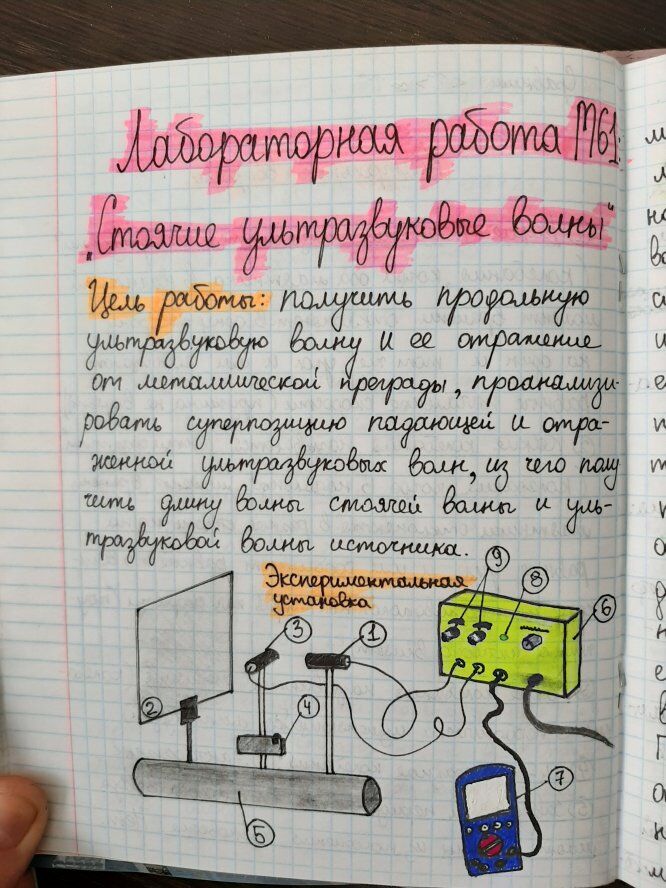 Лабораторная работа М61:
„Стоячие ультразвуковые волны"
Цель работы: получить продольную
ультразвуковую волну и ее отражение
от металлической преграды, проанализи-
ровать суперпозицию падающей и отра-
женной ультразвуковых волн, из чего полу
чить длину волны стоячей волны и уль-
тразвуковой волны источника.
Экспериментальная
установка
9
8
6
3
1
2
4
7
5